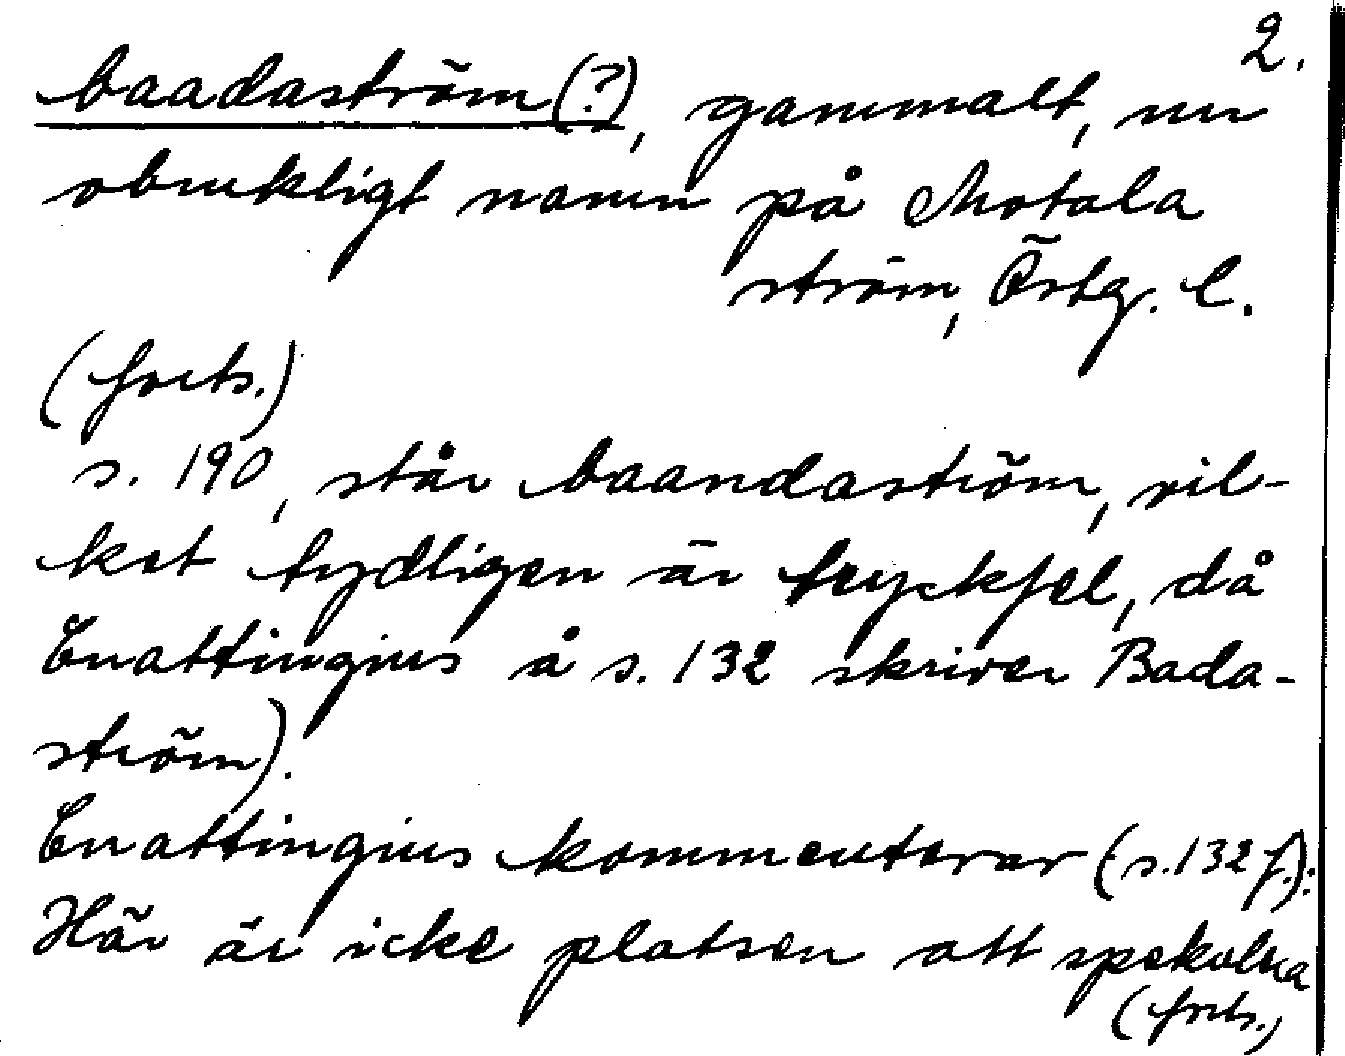 2.
baadaström(?), gammalt, nu
obrukligt namn på Motala
ström, Östg. l.
(forts.)
s. 190, står baandaström, vil-
ket tydligen är tryckfel, då
Cnattingius å s. 132 skriver Bada-
ström).
Cnattingius kommenterar (s. 132 f.):
Här är icke platsen att spekulera
(forts.)